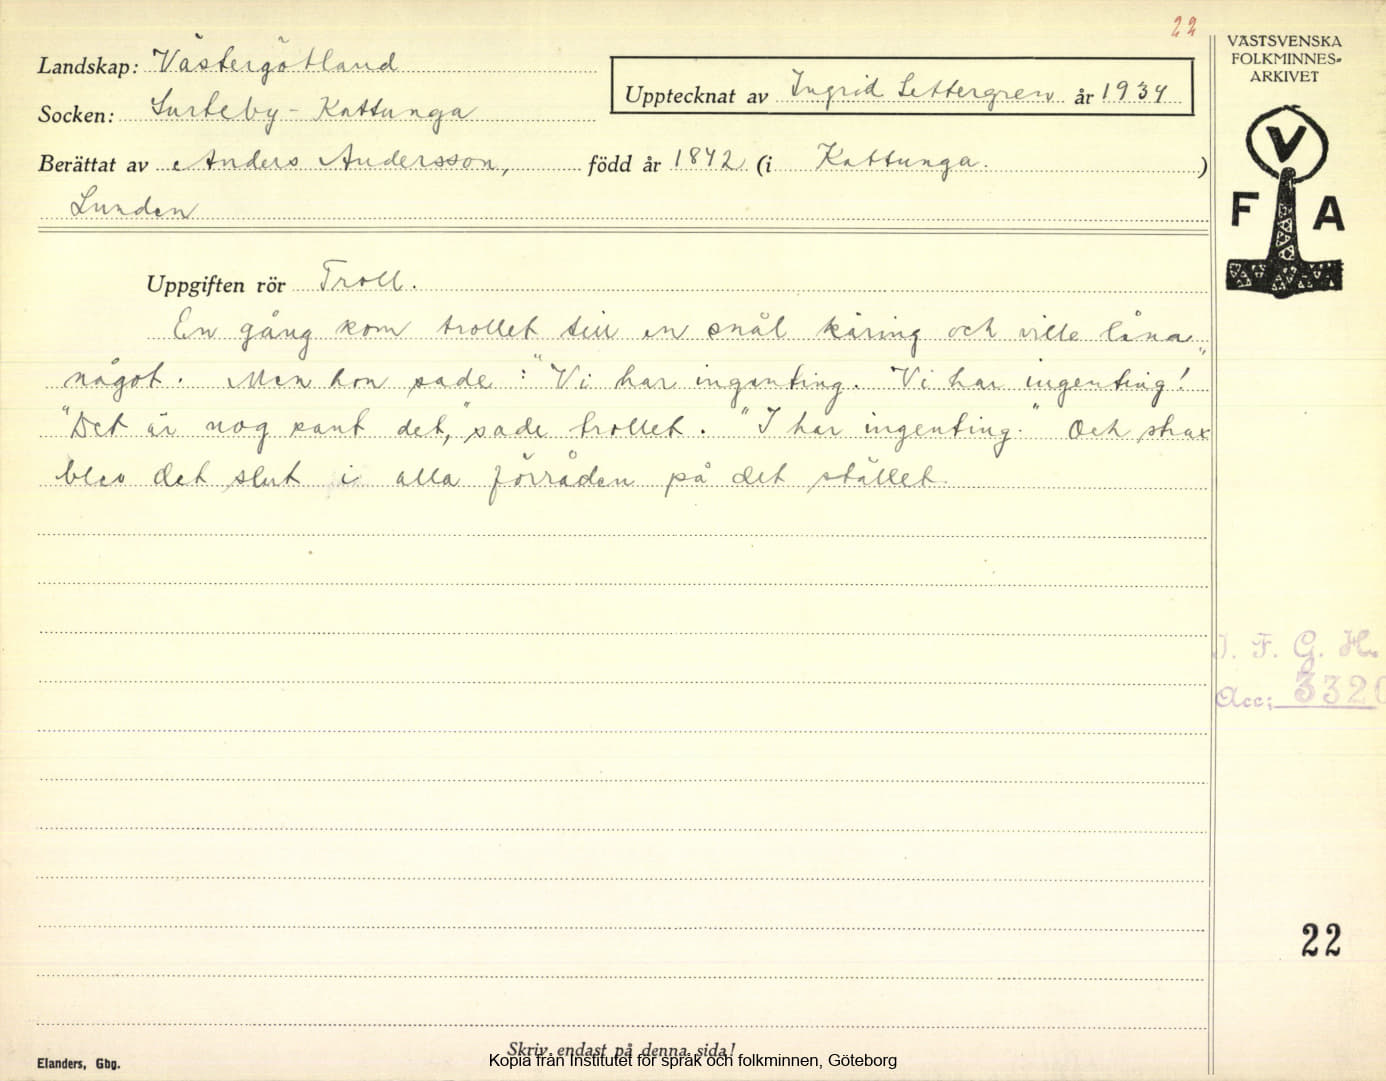 22
VÄSTSVENSKA
FOLKMINNES-
ARKIVET
Landskap: Västergötland
Upptecknat av Ingrid Settergren år 1934
Socken: Surteby - Kattunga
Berättat av Anders Andersson, född år 1842 (i Kattunga. )
Lunden
V
F A
Uppgiften rör Troll.
En gång kom trollet till en snål käring och ville låna
något. Men hon sade: "Vi har ingenting. Vi har ingenting!"
"Det är nog sant det," sade trollet. "I har ingenting." Och strax
blev det slut i alla förråden på det stället.
I. F. G. H.
Acc; 3320
22
Skriv endast på denna sida!
Kopia från Institutet för språk och folkminnen, Göteborg
Elanders, Gbg.